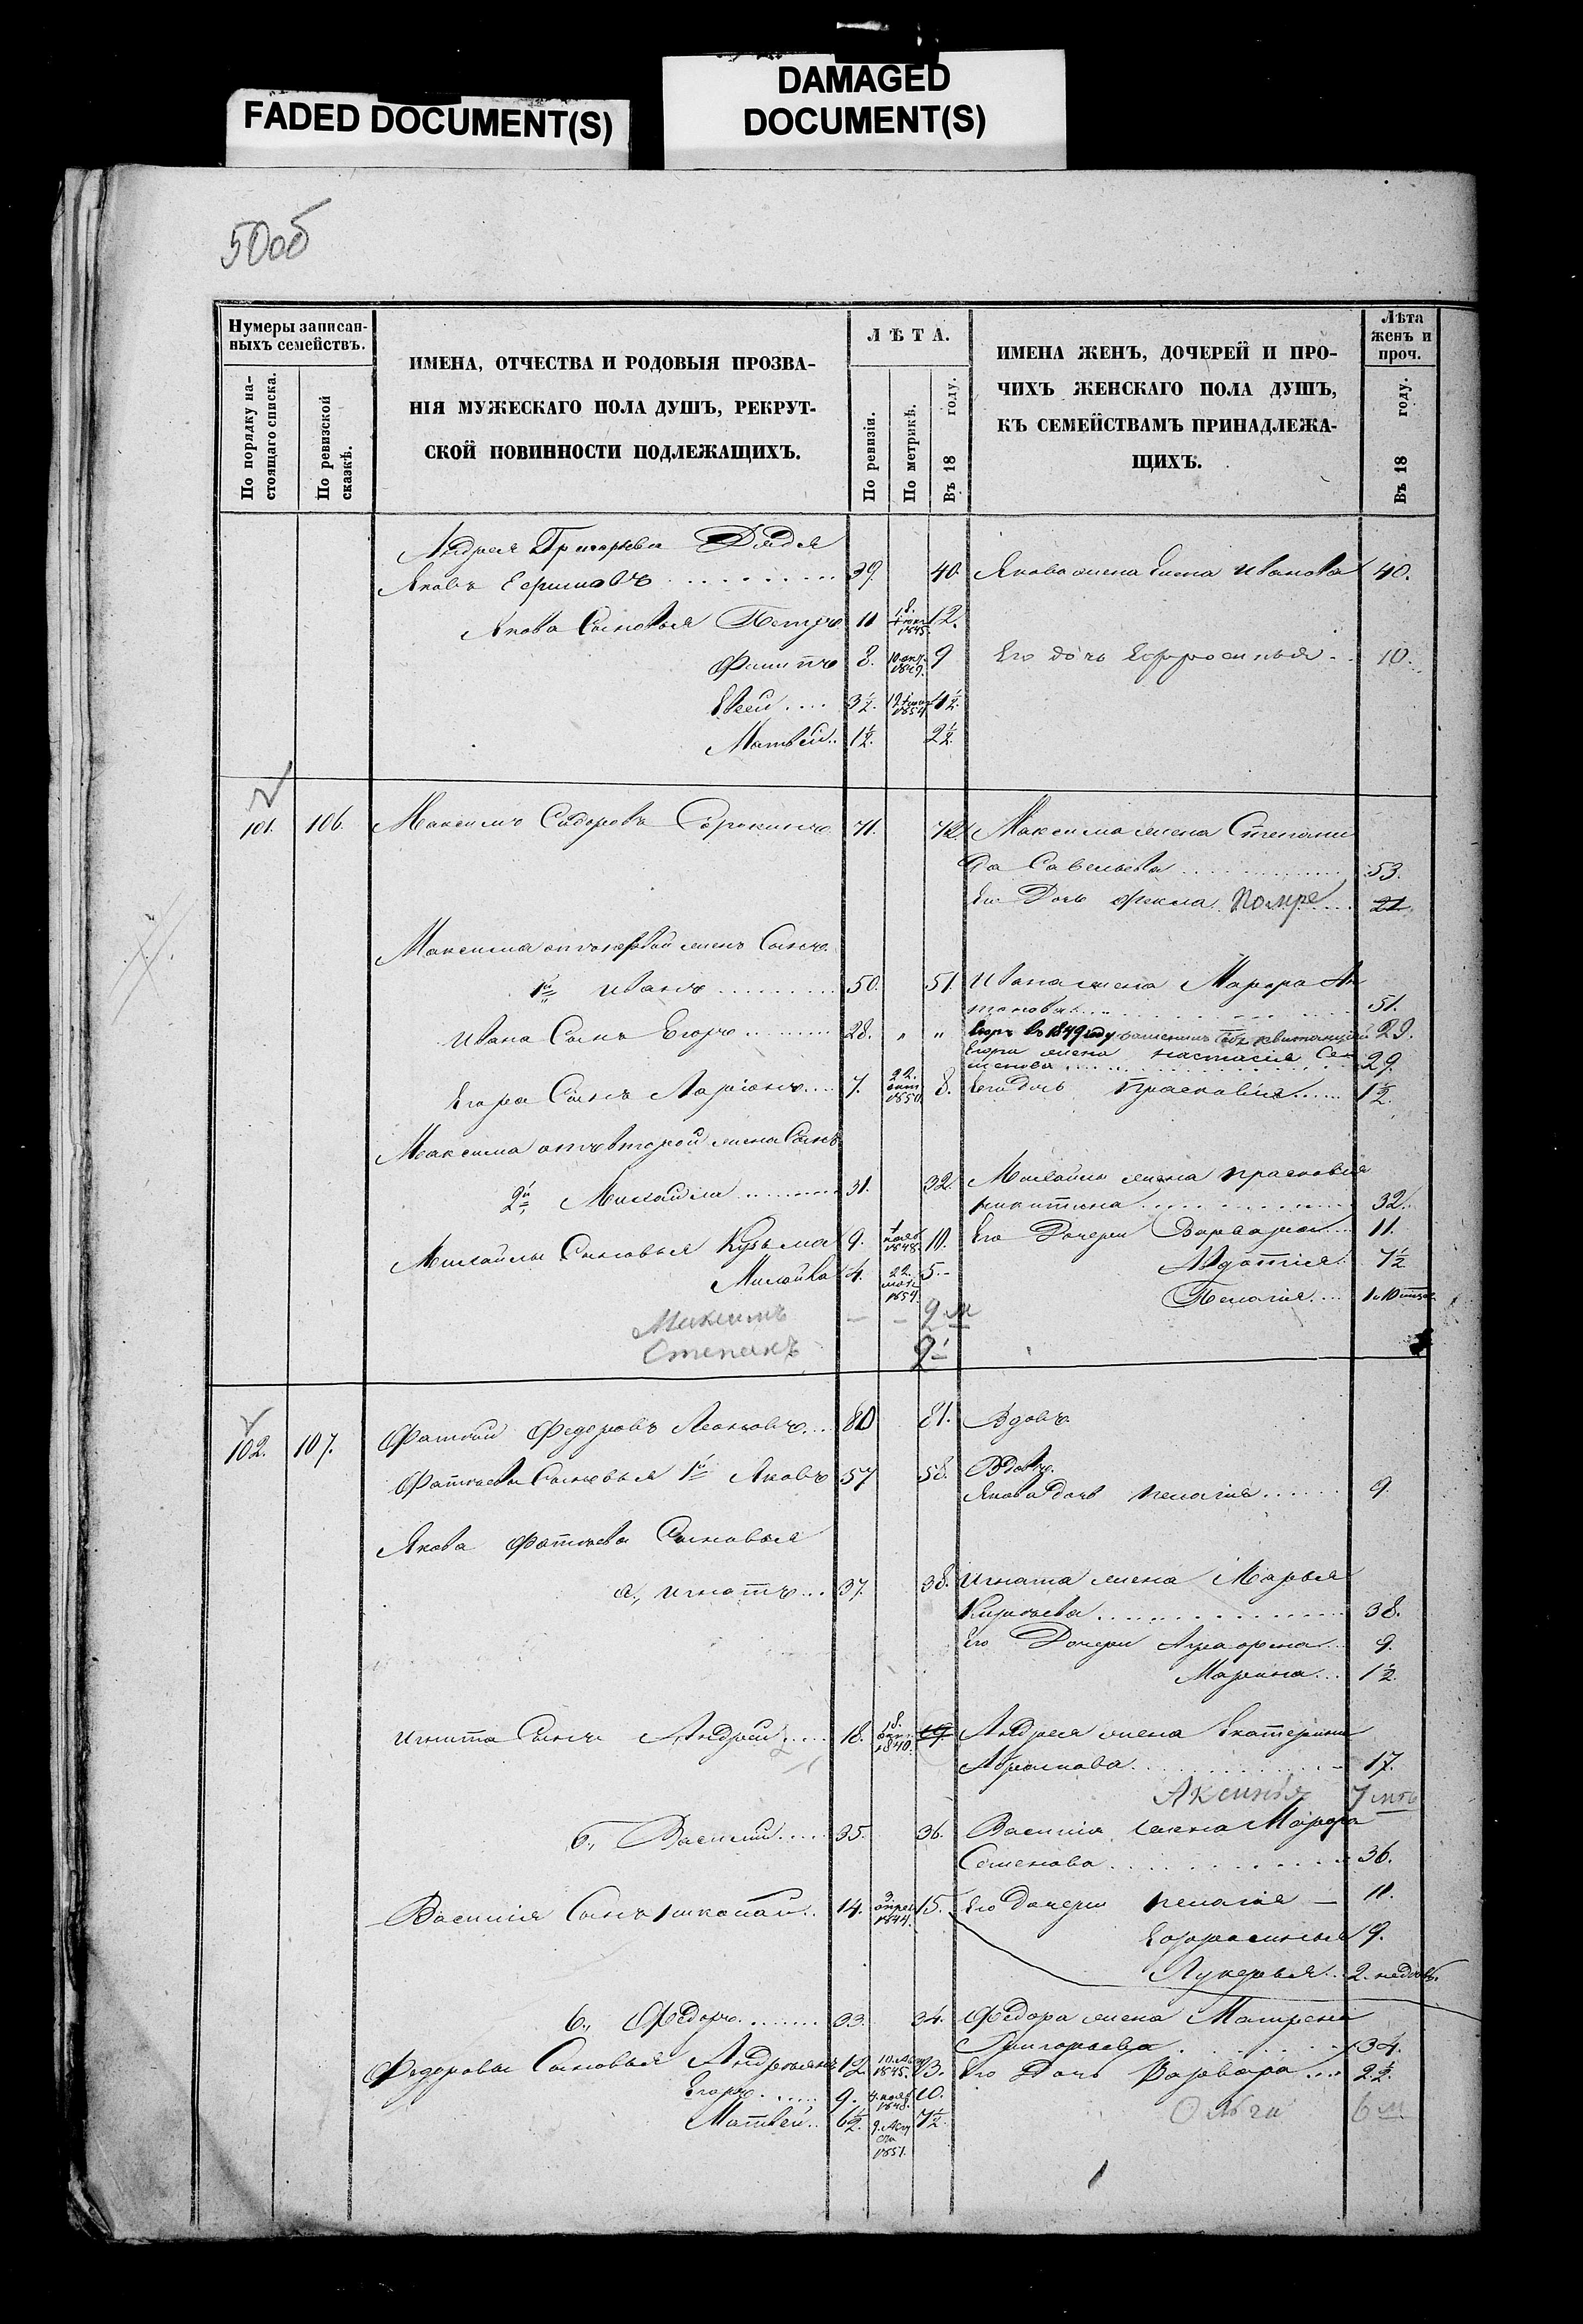 FADED DOCUMENT(S)
DAMAGED
DOCUMENT(S)
50об
Нумеры записан-
ныхъ семействъ.
По порядку на-
стоящаго списка.
По ревизской
сказкѣ.
ИМЕНА, ОТЧЕСТВА И РОДОВЫЯ ПРОЗВА-
НІЯ МУЖЕСКАГО ПОЛА ДУШЪ, РЕКРУТ-
СКОЙ ПОВИННОСТИ ПОДЛЕЖАЩИХЪ.
ЛѢТА.
По ревизіи.
По метрикѣ.
Въ 18 году.
ИМЕНА ЖЕНЪ, ДОЧЕРЕЙ И ПРО-
ЧИХЪ ЖЕНСКАГО ПОЛА ДУШЪ,
КЪ СЕМЕЙСТВАМЪ ПРИНАДЛЕЖА-
ЩИХЪ.
Лѣта
женъ и
проч.
Въ 18 году.
Андрея Григорьева Дядя
Яковъ Ефимовъ 39. 40. Якова жена Елена Иванова 40.
Якова Сыновья Петръ 11 1845. 12.
Филипъ 8. 9 Его дочь Ефросинья 10.
Евсей 3½. 1854 4½.
Матвей 1½. 2½.
101. 106. Максимъ Сидоровъ Сорокинъ 71. 72. Максима жена Степани
да Савельева 53.
Его Дочь Фекла Помре 21.
Максима отъ первой жены Сынъ
1й Иванъ 50. 51. Ивана жена Марфа Ан
тонова 51.
Ивана Сынъ Егоръ 28. " " Егоръ въ 1849 году 29.
Егора жена Настасія Се
менова 29.
Егора Сынъ Ларіонъ 7. 22. 1850 8. Его дочь Прасковья 1½.
Максима отъ второй жены Сынъ
2й Михайла 31. 32. Михайлы жена Прасковья
Никитина 32.
Михайлы Сыновья Кузьма 9. 1 нояб 1848. 10. Его Дочери Варвара 11.
Михайла 4. 22. 1854. 5. Авдотія 7½
Пелагія
Максимъ — — 9 м
Степанъ
102. 107. Фатей Федоровъ Леоновъ 80 81. Вдовъ
Фатеева Сыновья 1й Яковъ 57 58. Вдовъ.
Якова дочь Пелагія 9.
Якова Фатеева Сыновья
а., Игнатъ 37. 38. Игната жена Марья
38.
Его Дочери Аграфена 9.
Марина 1½.
Игната Сынъ Андрей 18. 1840. 19. Андрея жена Екатерина
Абрамова 17.
Аксинья 7 мѣс
б., Василій 35. 36. Василія жена Марфа
Семенова 36.
Василія Сынъ Николай 14. 3 апрел 1844. 15. Его Дочери Пелагія 11.
Ефросинья 9.
Лукерья 2. недѣл.
в., Федоръ 33. 34. Федора жена Матрена
Григорьева 34.
Федоровы Сыновья Андреянъ 12. 1845. 13. Его Дочь Варвара 2½.
Егоръ 9. 4. нояб 1848. 10. Ольга 6 м
Матвей 6½. 9. 1851. 7½.